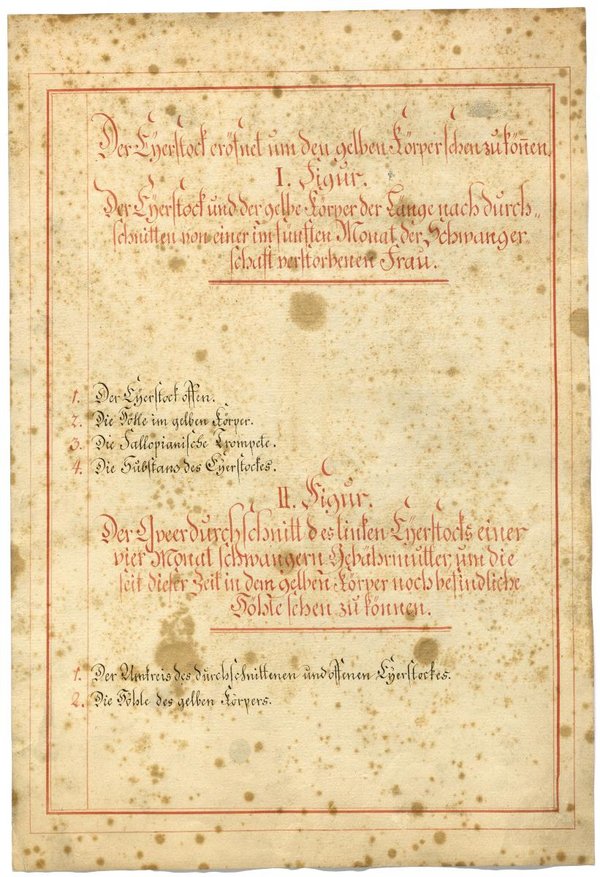 Der Eyerstock eröfnet um den gelben Körper sehen zu könen.
I. Figur.
Der Eyerstock und der gelbe Körper der Länge nach durch„
schnitten von einer im fünften Monat der Schwanger
schaft verstorbenen Frau.
1. Der Eyerstock offen.
2. Die Hölle im gelben Körper.
3. Die Fallopianische Trompete.
4. Die Substans des Eyerstockes.
II. Figur.
Der Qveerdurchschnitt des linken Eyerstocks einer
vier Monat schwangern Gebährmutter, um die
seit dieser Zeit in dem gelben Körper noch befindliche
Höhle sehen zu können.
1. Der Umkreis des durchschnittenen und offenen Eyerstockes.
2. Die Höhle des gelben Körpers.